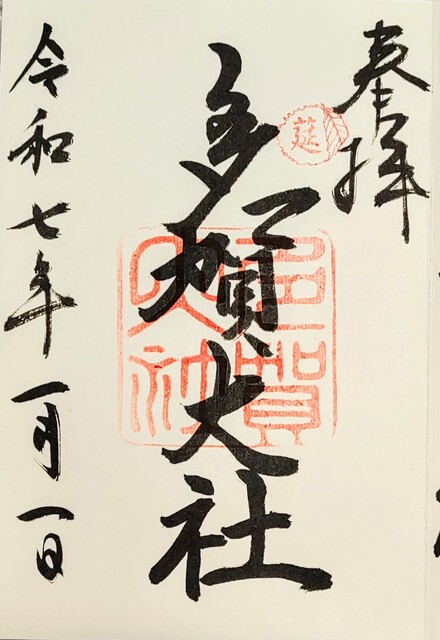 奉拝
莚
多賀大社
多賀大社
令和七年一月一日